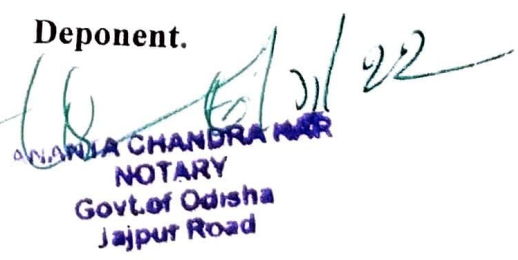 Deponent.
22
CHANDRA KAR
NOTARY
Govt.of Odisha
Jajpur Road